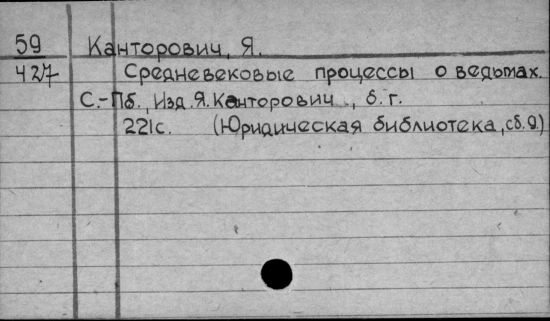 59 Канторович, Я.
427 Средневековые процессы о ведьмах.
С.-Пб., Изд. Я. Канторович, б. г.
221с. (Юридическая библиотека, сб. 9.)